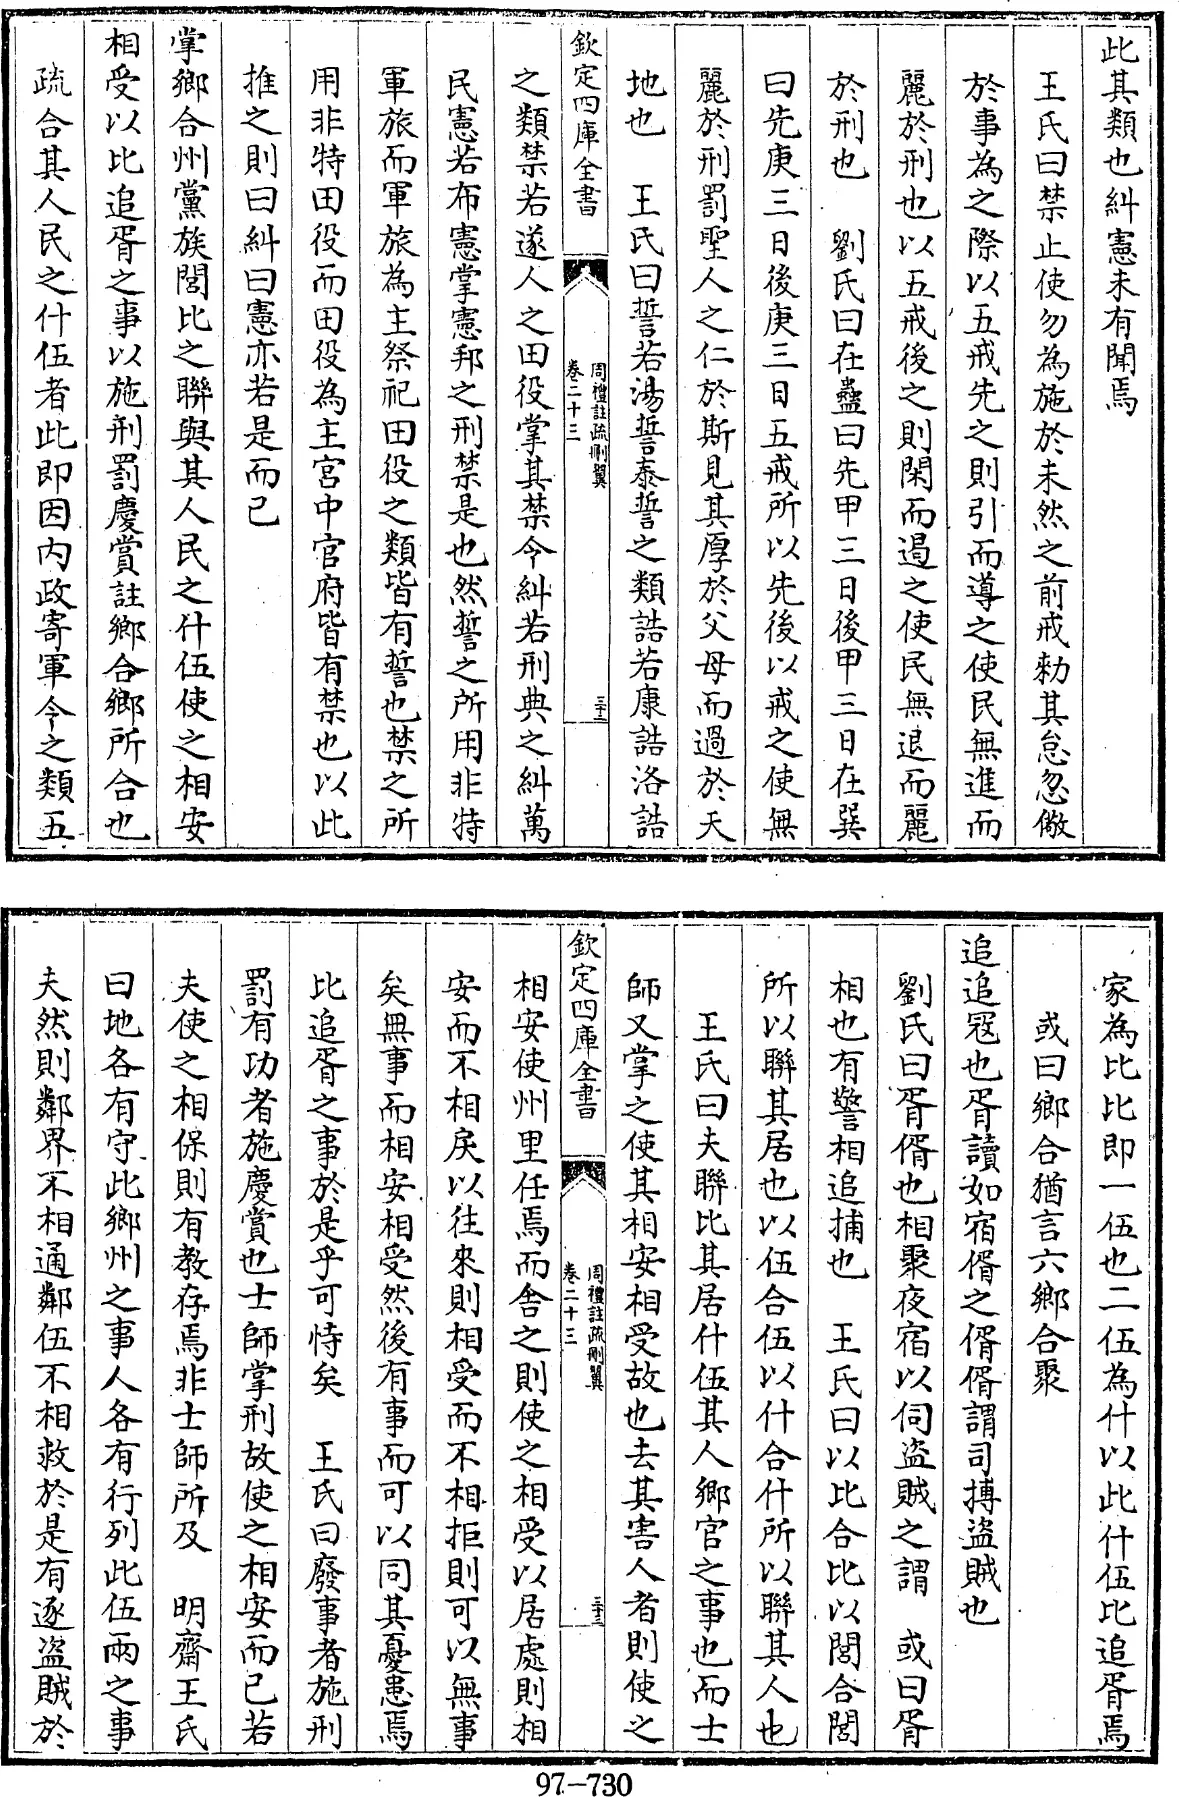 此其類也糾憲未有聞焉
王氏曰禁止使勿為施於未然之前戒勑其怠忽儆
於事為之際以五戒先之則引而導之使民無進而
麗於刑也以五戒後之則閑而過之使民無退而麗
於刑也　劉氏曰在蠱曰先甲三日後甲三日在巽
曰先庚三日後庚三日五戒所以先後以戒之使無
麗於刑罰聖人之仁於斯見其厚於父母而過於天
地也　王氏曰誓若湯誓泰誓之類誥若康誥洛誥
欽定四庫全書
周禮註疏刪翼
卷二十三
三十二
之類禁若遂人之田役掌其禁令糾若刑典之糾萬
民憲若布憲掌憲邦之刑禁是也然誓之所用非特
軍旅而軍旅為主祭祀田役之類皆有誓也禁之所
用非特田役而田役為主宮中官府皆有禁也以此
推之則曰糾曰憲亦若是而已
掌鄉合州黨族閭比之聯與其人民之什伍使之相安
相受以比追胥之事以施刑罰慶賞註鄉合鄉所合也
疏合其人民之什伍者此即因內政寄軍令之類五
家為比比即一伍也二伍為什以此什伍比追胥焉
或曰鄉合猶言六鄉合聚
追追冦也胥讀如宿偦之偦偦謂司搏盜賊也
劉氏曰胥偦也相聚夜宿以伺盜賊之謂　或曰胥
相也有警相追捕也　王氏曰以比合比以閭合閭
所以聯其居也以伍合伍以什合什所以聯其人也
王氏曰夫聯比其居什伍其人鄉官之事也而士
師又掌之使其相安相受故也去其害人者則使之
欽定四庫全書
周禮註疏刪翼
卷二十三
三十三
相安使州里任焉而舍之則使之相受以居處則相
安而不相戾以往來則相受而不相拒則可以無事
矣無事而相安相受然後有事而可以同其憂患焉
比追胥之事於是乎可恃矣　王氏曰廢事者施刑
罰有功者施慶賞也士師掌刑故使之相安而已若
夫使之相保則有教存焉非士師所及　明齋王氏
曰地各有守此鄉州之事人各有行列此伍兩之事
夫然則鄰界不相通鄰伍不相救於是有逐盜賊於
97-730